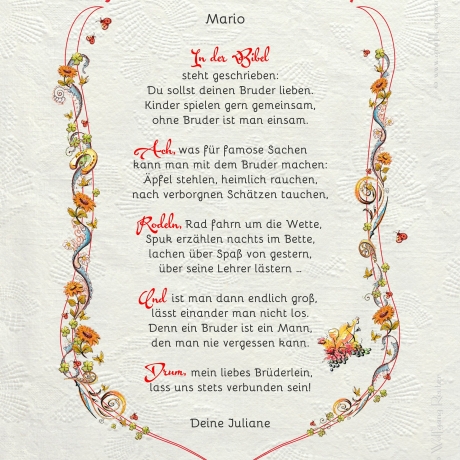 Mario
In der Bibel
steht geschrieben:
Du sollst deinen Bruder lieben.
Kinder spielen gern gemeinsam,
ohne Bruder ist man einsam.
Ach, was für famose Sachen
kann man mit dem Bruder machen:
Äpfel stehlen, heimlich rauchen,
nach verborgnen Schätzen tauchen,
Rodeln, Rad fahrn um die Wette,
Spuk erzählen nachts im Bette,
lachen über Spaß von gestern,
über seine Lehrer lästern ...
Und ist man dann endlich groß,
lässt einander man nicht los.
Denn ein Bruder ist ein Mann,
den man nie vergessen kann.
Drum, mein liebes Brüderlein,
lass uns stets verbunden sein!
Deine Juliane